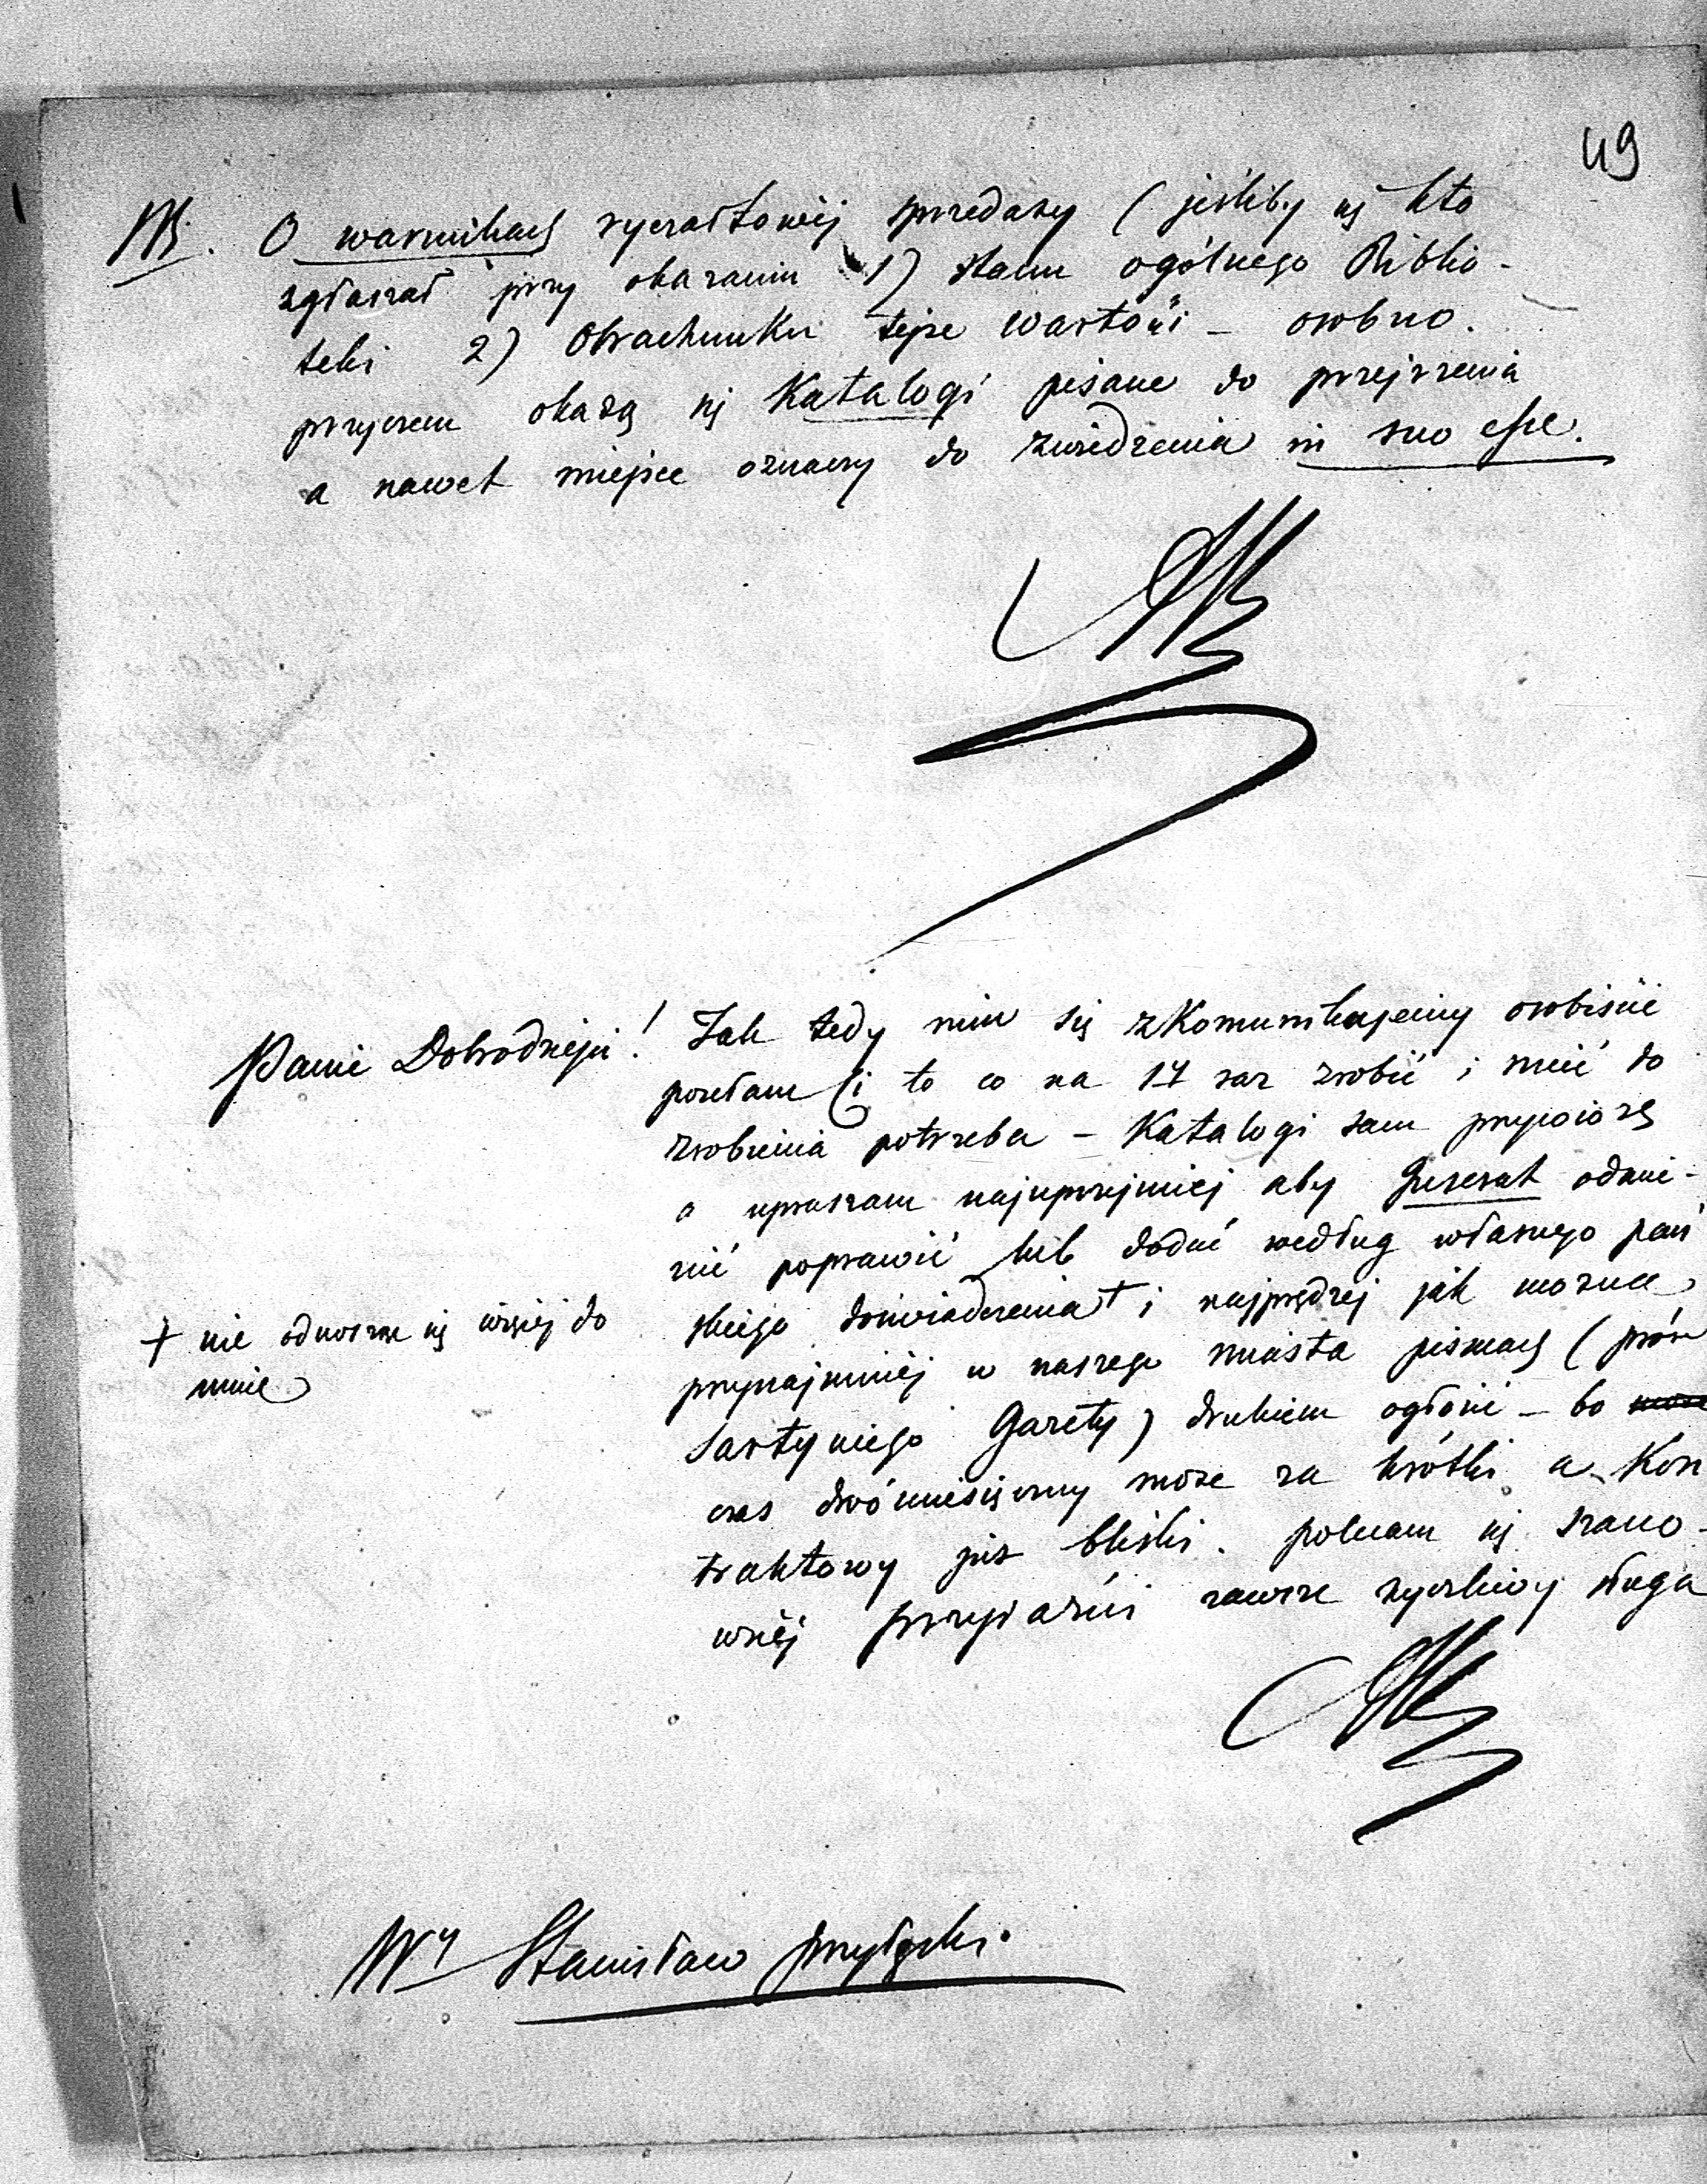 49
O warunkach ryczałtowéj sprzedaży (jeśliby się kto
zgłaszał przy okazaniu 1) stanu ogólnego Biblio-
teki 2) Obrachunku tejże wartości – osobno.
przyczem okażą się Katalogi pisane do przejrzenia
a nawet miejsce oznaczy do zwiedzenia in suo esse.
Panie Dobrodzieju! Jak tedy nim się zkomunikujemy osobiście
posełam i to co na 1y raz zrobić i mieć do
zrobienia potrzeba – Katalogi sam przywiozę
a upraszam najuprzejmiej aby Inserat odmie-
nić poprawić lub dodać według własnego pań
skiego doświadczenia + i najprędzej jak można
+ nie odnosząc się więcej do
mnie
przynajmniéj w naszego miasta pismach (prócz
Sartyniego Gazety) drukiem ogłosić – bo
czas dwómiesięczny może za krótki a Kon
traktowy już bliski. polecam się szano-
wnéj przyjaźni zawsze życzliwy sługa
Wy Stanisław Przyłęcki.